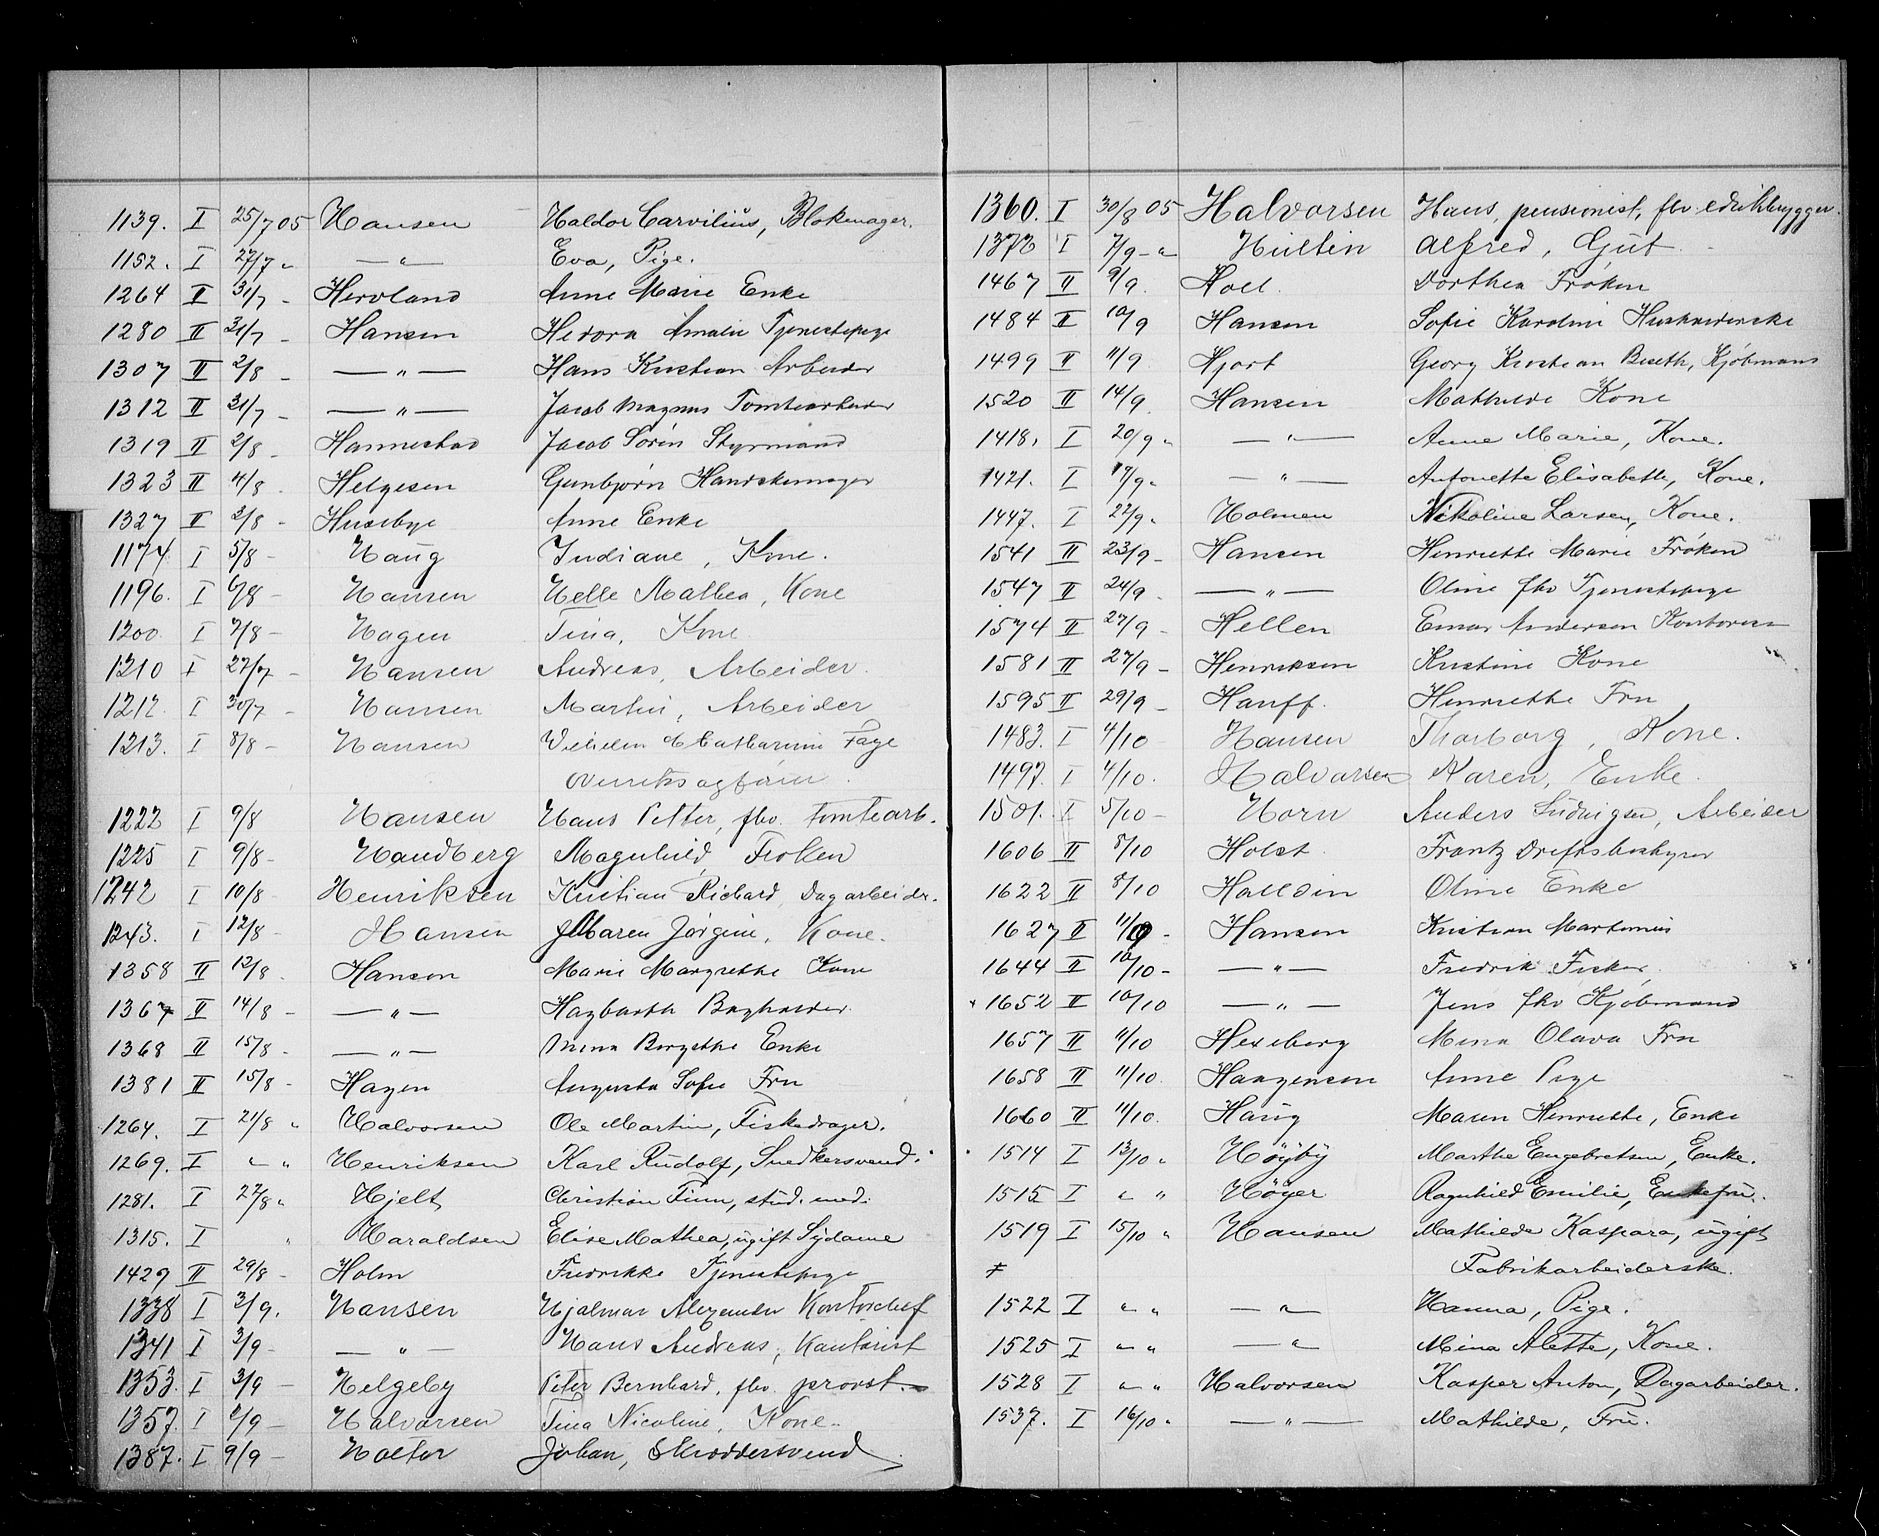 1139. I 25/7 05 Hansen Haldor Carvilius, Blokmager.
1152. I 27/7 " — " — Eva, Pige.
1264 II 31/7 - Hervland Anne Marie Enke
1280 II 31/7 - Hansen Amalie Tjenestepige
1307 II 2/8 - — " — Hans Kristian Arbeider
1312 II 31/7 - — " — Jacob Magnus Tomtearbeider
1319 II 2/8 - Hannestad Jacob Sørin Styrmand
1323 II 4/8 - Helgesen Gunbjørn Handskemager
1327 II 2/8 - Husebye Anne Enke
1174. I 5/8 - Haug Indiane, Kone.
1196. I 6/8 - Hansen Helle Mathea, Kone
1200 I 7/8 - Hagen Tina, Kone
1210 I 27/7 - Hansen Andreas, Arbeider.
1212. I 30/7 - Hansen Martin, Arbeider
1213. I 8/8 - Hansen Catharinus Faye
1222 I 9/8 Hansen Hans Petter, fhv. tomtearb.
1225 I 9/8 - Handberg Magnhild, Frøken
1242 I 10/8 - Henriksen Kristian Richard, Dagarbeider.
1243. I 12/8 - Hansen Maren Jørgine, Kone.
1358 II 12/8 - Hansen Marie Margrethe Kone
1367 II 14/8 - — " — Hagbarth Bagholder
1368 II 15/8 - — " — Mina Birgethe Enke
1381 II 15/8 - Hagen Augusta Sofie Fru
1264. I 21/8 " Halvorsen Ole Martin, Fiskedrager.
1269. I " " Henriksen Karl Rudolf, Snedkersvend.
1281. I 22/8 " Hjelt Christian Finn, stud. med.
1315. I " Haraldsen Elise Mathea, ugift Sydame
1429 II 29/8 - Holm Fredrikke Tjenestepige
1338 I 3/9. Hansen Hjalmar Alexander Kontorchef
1341 I 3/9 - — " — Hans Andreas, Kontorist
1353. I 3/9 - Helgeby Peter Bernhard, fhv. provst.
1357. I 2/9 - Halvorsen Tina Nicoline, Kone.
1387. I 9/9 - Holter Johan, Skræddersvend.
1360. I 30/8 05 Halvorsen Hans, pensionist, fhv.
1373 I 7/9 - " Hultin Alfred, Gut
1467 II 9/9. Hoel. Dorthea Frøken
1484 II 10/9 Hansen Sofie Karoline
1499 II 11/9 Hjort Georg Kristian Kjøbmand
1520 II 14/9. Hansen Mathilde Kone
1418. I 20/9 " — " — Anne Marie, Kone.
1421. I 17/9 " — " — Antonette Elisabeth, Kone.
1447. I 22/9 " Holmen Nikoline Larsen, Kone.
1541 II 23/9 - Hansen Henriette Marie Frøken
1547 II 24/9. — " — Oline fhv Tjenestepige
1574 II 27/9 - Hellen Einar Andersen
1581 II 27/9 - Henriksen Kristine Kone
1595 II 29/9 - Hanff. Henriette Fru
1483. I 4/10 Hansen Thorborg, Kone.
1497. I 4/10. Halvorsen Karen, Enke.
1501. I 5/10 - Horn Anders Ludvigsen, Arbeider
1606 II 8/10 Holst Frantz Driftsbestyrer
1622 II 8/10 Halldin Oline Enke
1627 II 11/10 - Hansen Kristian Martinius
1644 II 10/10 - — " — Fredrik Fisker.
1652 II 10/10 — " — Jens fhv Kjøbmand
1657 II 11/10 Hexeberg Mina Olava Fru
1658 II 11/10. Haagensen Anne Pige
1660 II 11/10. Haug Maren Henriette, Enke
1514 I 13/10 " Høyby Marthe Engebretsen, Enke.
1515 I " " Høyer Ragnhild Emilie, Enkefru.
1519 I 15/10 " Hansen Mathilde Kaspara, ugift
Fabrikarbeiderske.
1522 I " " — " — Hanna, Pige.
1525 I " " — " Mina Alette, Kone.
1528 I " " Halvorsen Kasper Anton, Dagarbeider.
1537. I 16/10 " — " — Mathilde, Fru.